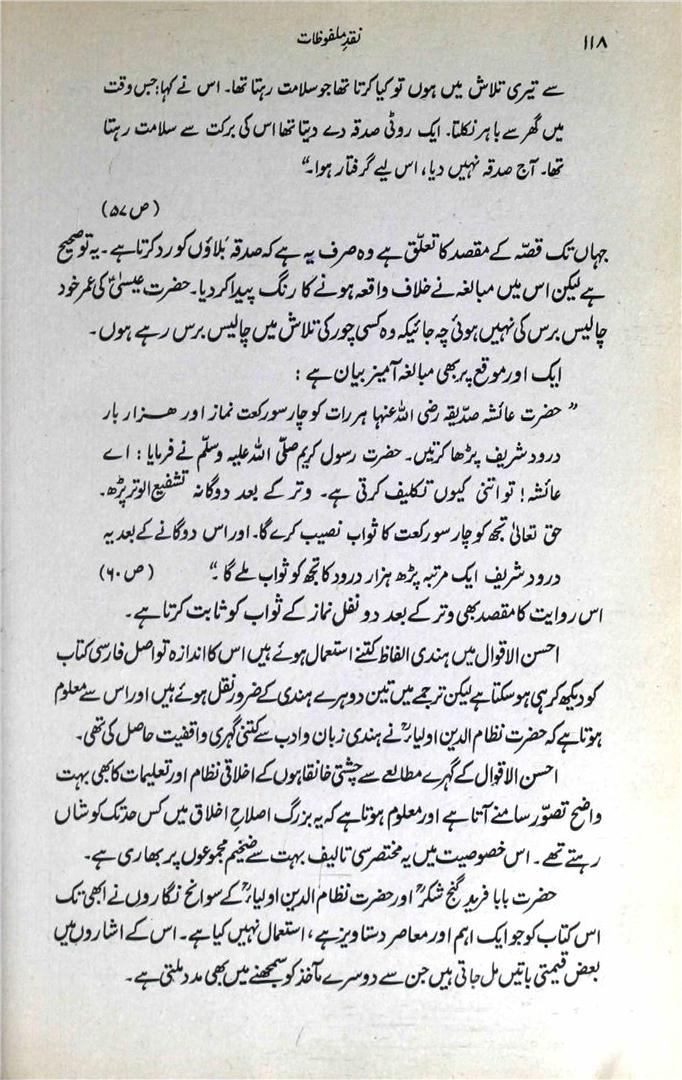 ۱۱۸
نقدِ ملفوظات
سے تیری تلاش میں ہوں تو کیا کرتا تھا جو سلامت رہتا تھا۔ اس نے کہا: جس وقت
میں گھر سے باہر نکلتا۔ ایک روٹی صدقہ دے دیتا تھا اس کی برکت سے سلامت رہتا
تھا۔ آج صدقہ نہیں دیا، اس لیے گرفتار ہوا۔"
(ص ۵۷)
جہاں تک قصّہ کے مقصد کا تعلّق ہے وہ صرف یہ ہے کہ صدقہ بَلاؤں کو رد کرتا ہے۔ یہ تو صحیح
ہے لیکن اس میں مبالغہ نے خلاف واقعہ ہونے کا رنگ پیدا کر دیا۔ حضرت عیسیٰؑ کی عمر خود
چالیس برس کی نہیں ہوئی چہ جائیکہ وہ کسی چور کی تلاش میں چالیس برس رہے ہوں۔
ایک اور موقع پر بھی مبالغہ آمیز بیان ہے :
" حضرت عائشہ صدّیقہ رضی اللہ عنہا ہر رات کو چار سو رکعت نماز اور ہزار بار
درود شریف پڑھا کرتیں۔ حضرت رسول کریم صلّی اللہ علیہ وسلّم نے فرمایا : اے
عائشہ ! تو اتنی کیوں تکلیف کرتی ہے۔ وتر کے بعد دوگانہ تشفیع الوتر پڑھ۔
حق تعالیٰ تجھ کو چار سو رکعت کا ثواب نصیب کرے گا۔ اور اس دوگانے کے بعد یہ
درود شریف ایک مرتبہ پڑھ ہزار درود کا تجھ کو ثواب ملے گا۔" (ص ۶۰)
اس روایت کا مقصد بھی وتر کے بعد دو نفل نماز کے ثواب کو ثابت کرتا ہے۔
احسن الاقوال میں ہندی الفاظ کتنے استعمال ہوئے ہیں اس کا اندازہ تو اصل فارسی کتاب
کو دیکھ کر ہی ہو سکتا ہے لیکن ترجمے میں تین دوہرے ہندی کے ضرور نقل ہوئے ہیں اور اس سے معلوم
ہوتا ہے کہ حضرت نظام الدین اولیاءؒ نے ہندی زبان و ادب سے کتنی گہری واقفیت حاصل کی تھی۔
احسن الاقوال کے گہرے مطالعے سے چشتی خانقاہوں کے اخلاقی نظام اور تعلیمات کا بھی بہت
واضح تصوّر سامنے آتا ہے اور معلوم ہوتا ہے کہ یہ بزرگ اصلاحِ اخلاق میں کس حد تک کوشاں
رہتے تھے۔ اس خصوصیت میں یہ مختصر سی تالیف بہت سے ضخیم مجموعوں پر بھاری ہے۔
حضرت بابا فرید گنج شکرؒ اور حضرت نظام الدین اولیاءؒ کے سوانح نگاروں نے ابھی تک
اس کتاب کو جو ایک اہم اور معاصر دستاویز ہے، استعمال نہیں کیا ہے۔ اس کے اشاروں میں
بعض قیمتی باتیں مل جاتی ہیں جن سے دوسرے مآخذ کو سمجھنے میں بھی مدد ملتی ہے۔